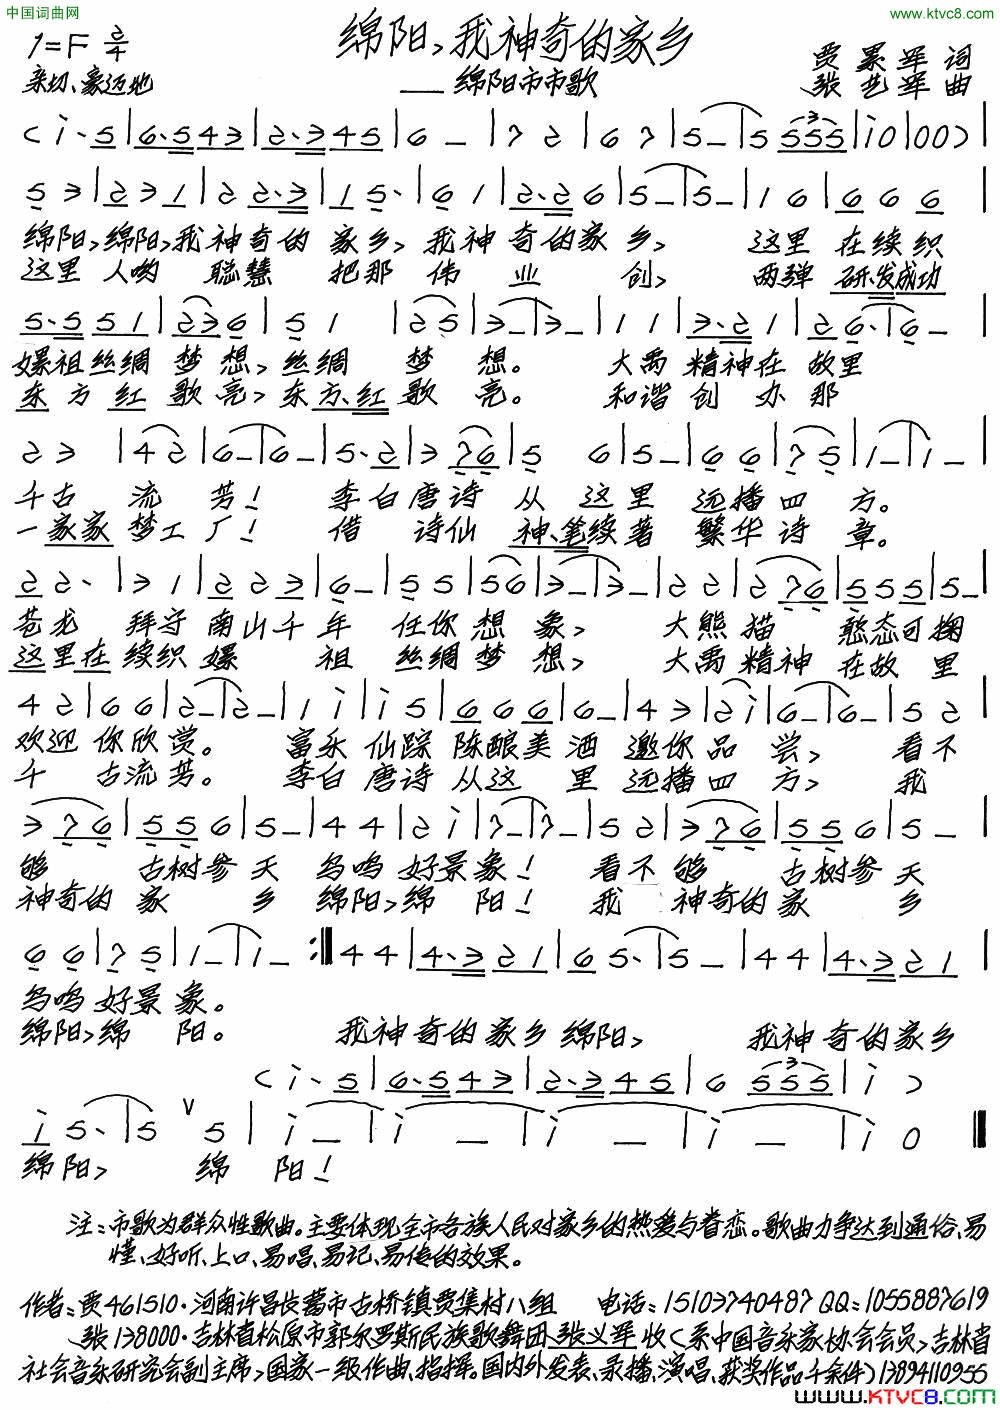 中国词曲网
www.ktvc8.com
1=F 2/4
绵阳,我神奇的家乡
亲切、豪迈地
——绵阳市市歌
贾累军 词
张艺军 曲
( i· 5 | 6·5 4 3 | 2·3 4 5 | 6 – | 7 2 | 6 7 | 5 – | 5 555 | i 0 | 0 0 ) |
5 3 | 2 3 1 | 2 2·3 | 1 5· | 6 1 | 2·2 6 | 5 – | 5 – | 1 6 | 6 6 6 |
绵阳,绵阳,我神奇的 家乡, 我神 奇的家 乡, 这里 在续织
这里 人哟 聪慧 把那 伟 业 创, 两弹 研发成功
5·5 5 1 | 2 3 6 | 5 1 | 2 5 | 3 – | 3 – | 1 1 | 3·2 1 | 2 6· | 6 – |
嫘祖丝绸 梦 想, 丝绸 梦 想。 大禹 精神在 故里
东 方 红 歌 亮, 东方、红 歌 亮。 和谐 创 办 那
2 3 | 4 2 | 6 – | 6 – | 5·2 | 3 7 6 | 5 6 | 5 – | 6 6 | 7 5 | 1 – | 1 – |
千古 流 芳! 李白唐诗 从 这里 远播四 方。
一家家 梦工 厂! 借 诗仙 神、笔续著 繁华诗 章。
2 2· | 3 1 | 2 2 3 | 6 – | 5 5 | 5 6 | 3 – | 3 – | 2 2 | 2 7 6 | 5 5 5 | 5 – |
苍龙 拜守 南山千 年 任你 想 象, 大熊 猫 憨态可掬
这里在 续织 嫘 祖 丝绸梦 想, 大禹精神 在故 里
4 2 | 6 6 | 2 – | 2 – | 1 i | i 5 | 6 6 6 | 6 – | 4 3 | 2 i | 6 – | 6 – | 5 2
欢迎 你欣 赏。 富乐 仙踪 陈酿美 酒 邀你 品 尝, 看不
千 古流 芳。 李白 唐诗 从这 里 远播四 方, 我
3 7 6 | 5 5 6 | 5 – | 4 4 | 2 i | 7 – | 7 – | 5 2 | 3 7 6 | 5 5 6 | 5 – |
够 古树参 天 鸟鸣 好景 象! 看不 够 古树参 天
神奇的 家 乡 绵阳,绵 阳! 我 神奇的家 乡
6 6 | 7 5 | 1 – | 1 – :| 4 4 | 4·3 2 1 | 6 5· | 5 – | 4 4 | 4·3 2 1 |
鸟鸣 好景 象。
绵阳,绵 阳。 我神 奇的 家乡 绵阳, 我神 奇的家乡
( i· 5 | 6·5 4 3 | 2·3 4 5 | 6 555 | i )
i 5· | 5 V 5 | i – | i – | i – | i – | i 0 ||
绵阳, 绵 阳!
注:市歌为群众性歌曲。主要体现全市各族人民对家乡的热爱与眷恋。歌曲力争达到通俗、易
懂、好听、上口、易唱、易记、易传的效果。
作者:贾461510·河南许昌长葛市古桥镇贾集村八组 电话:15103740487 QQ:1055887619
张138000·吉林省松原市郭尔罗斯民族歌舞团 张义军 收(系中国音乐家协会会员,吉林省
社会音乐研究会副主席,国家一级作曲、指挥。国内外发表、录播、演唱、获奖作品千余件)13894110955
www.KTVC8.com